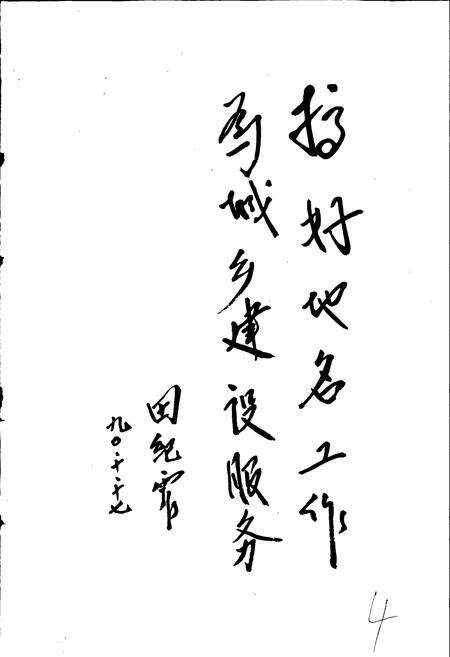 搞好地名工作
为城乡建设服务
田纪云
九〇·十·十七
4